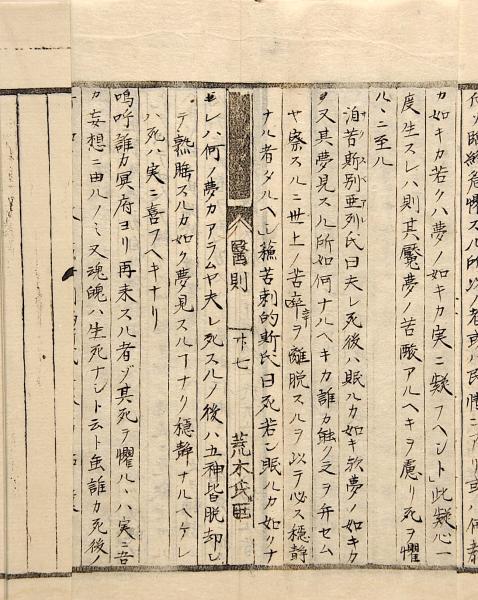 カ如キカ若クハ夢ノ如キカ実ニ疑フヘシト」此疑心一
度生スレハ則其魘夢ノ苦酸アルヘキヲ慮リ死ヲ懼
ルヽニ至ル
泊苦斯別亜列氏曰夫レ死後ハ眠ルカ如キ欤夢ノ如キカ
又其夢見スル所如何ナルヘキカ誰カ能ク之ヲ弁セム
ヤ察スルニ世上ノ苦辛ヲ離脱スルヲ以テ必ス穏静
ナル者タルヘシ」蘓苦刺的斯氏曰死若シ眠ルカ如クナ
醫則
卞七
荒木氏
レハ何ノ夢カアラムヤ夫レ死スルノ後ハ五神皆脱却シ
テ熟睡スルカ如ク夢見スルヿナリ穏静ナルヘケレ
ハ死ハ実ニ喜フヘキナリ
嗚呼誰カ冥府ヨリ再来スル者ゾ其死ヲ懼ルヽハ実ニ吾
カ妄想ニ由ルノミ又魂魄ハ生死ナシト云ト虽誰カ死後